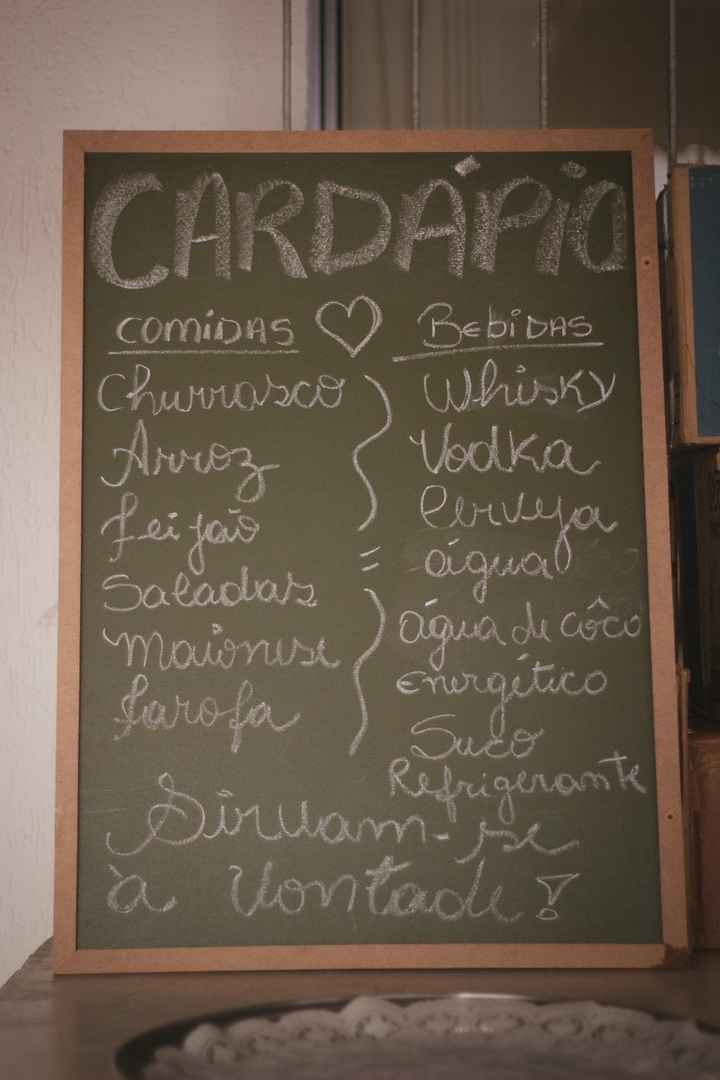 CARDÁPiO
COMiDAS
Churrasco
Arroz
Feijão
Saladas
Maionese
Farofa
BEbiDAS
Whisky
Vodka
Cerveja
água
água de côco
Energético
Suco
Refrigerante
Sirvam-se
à vontade!